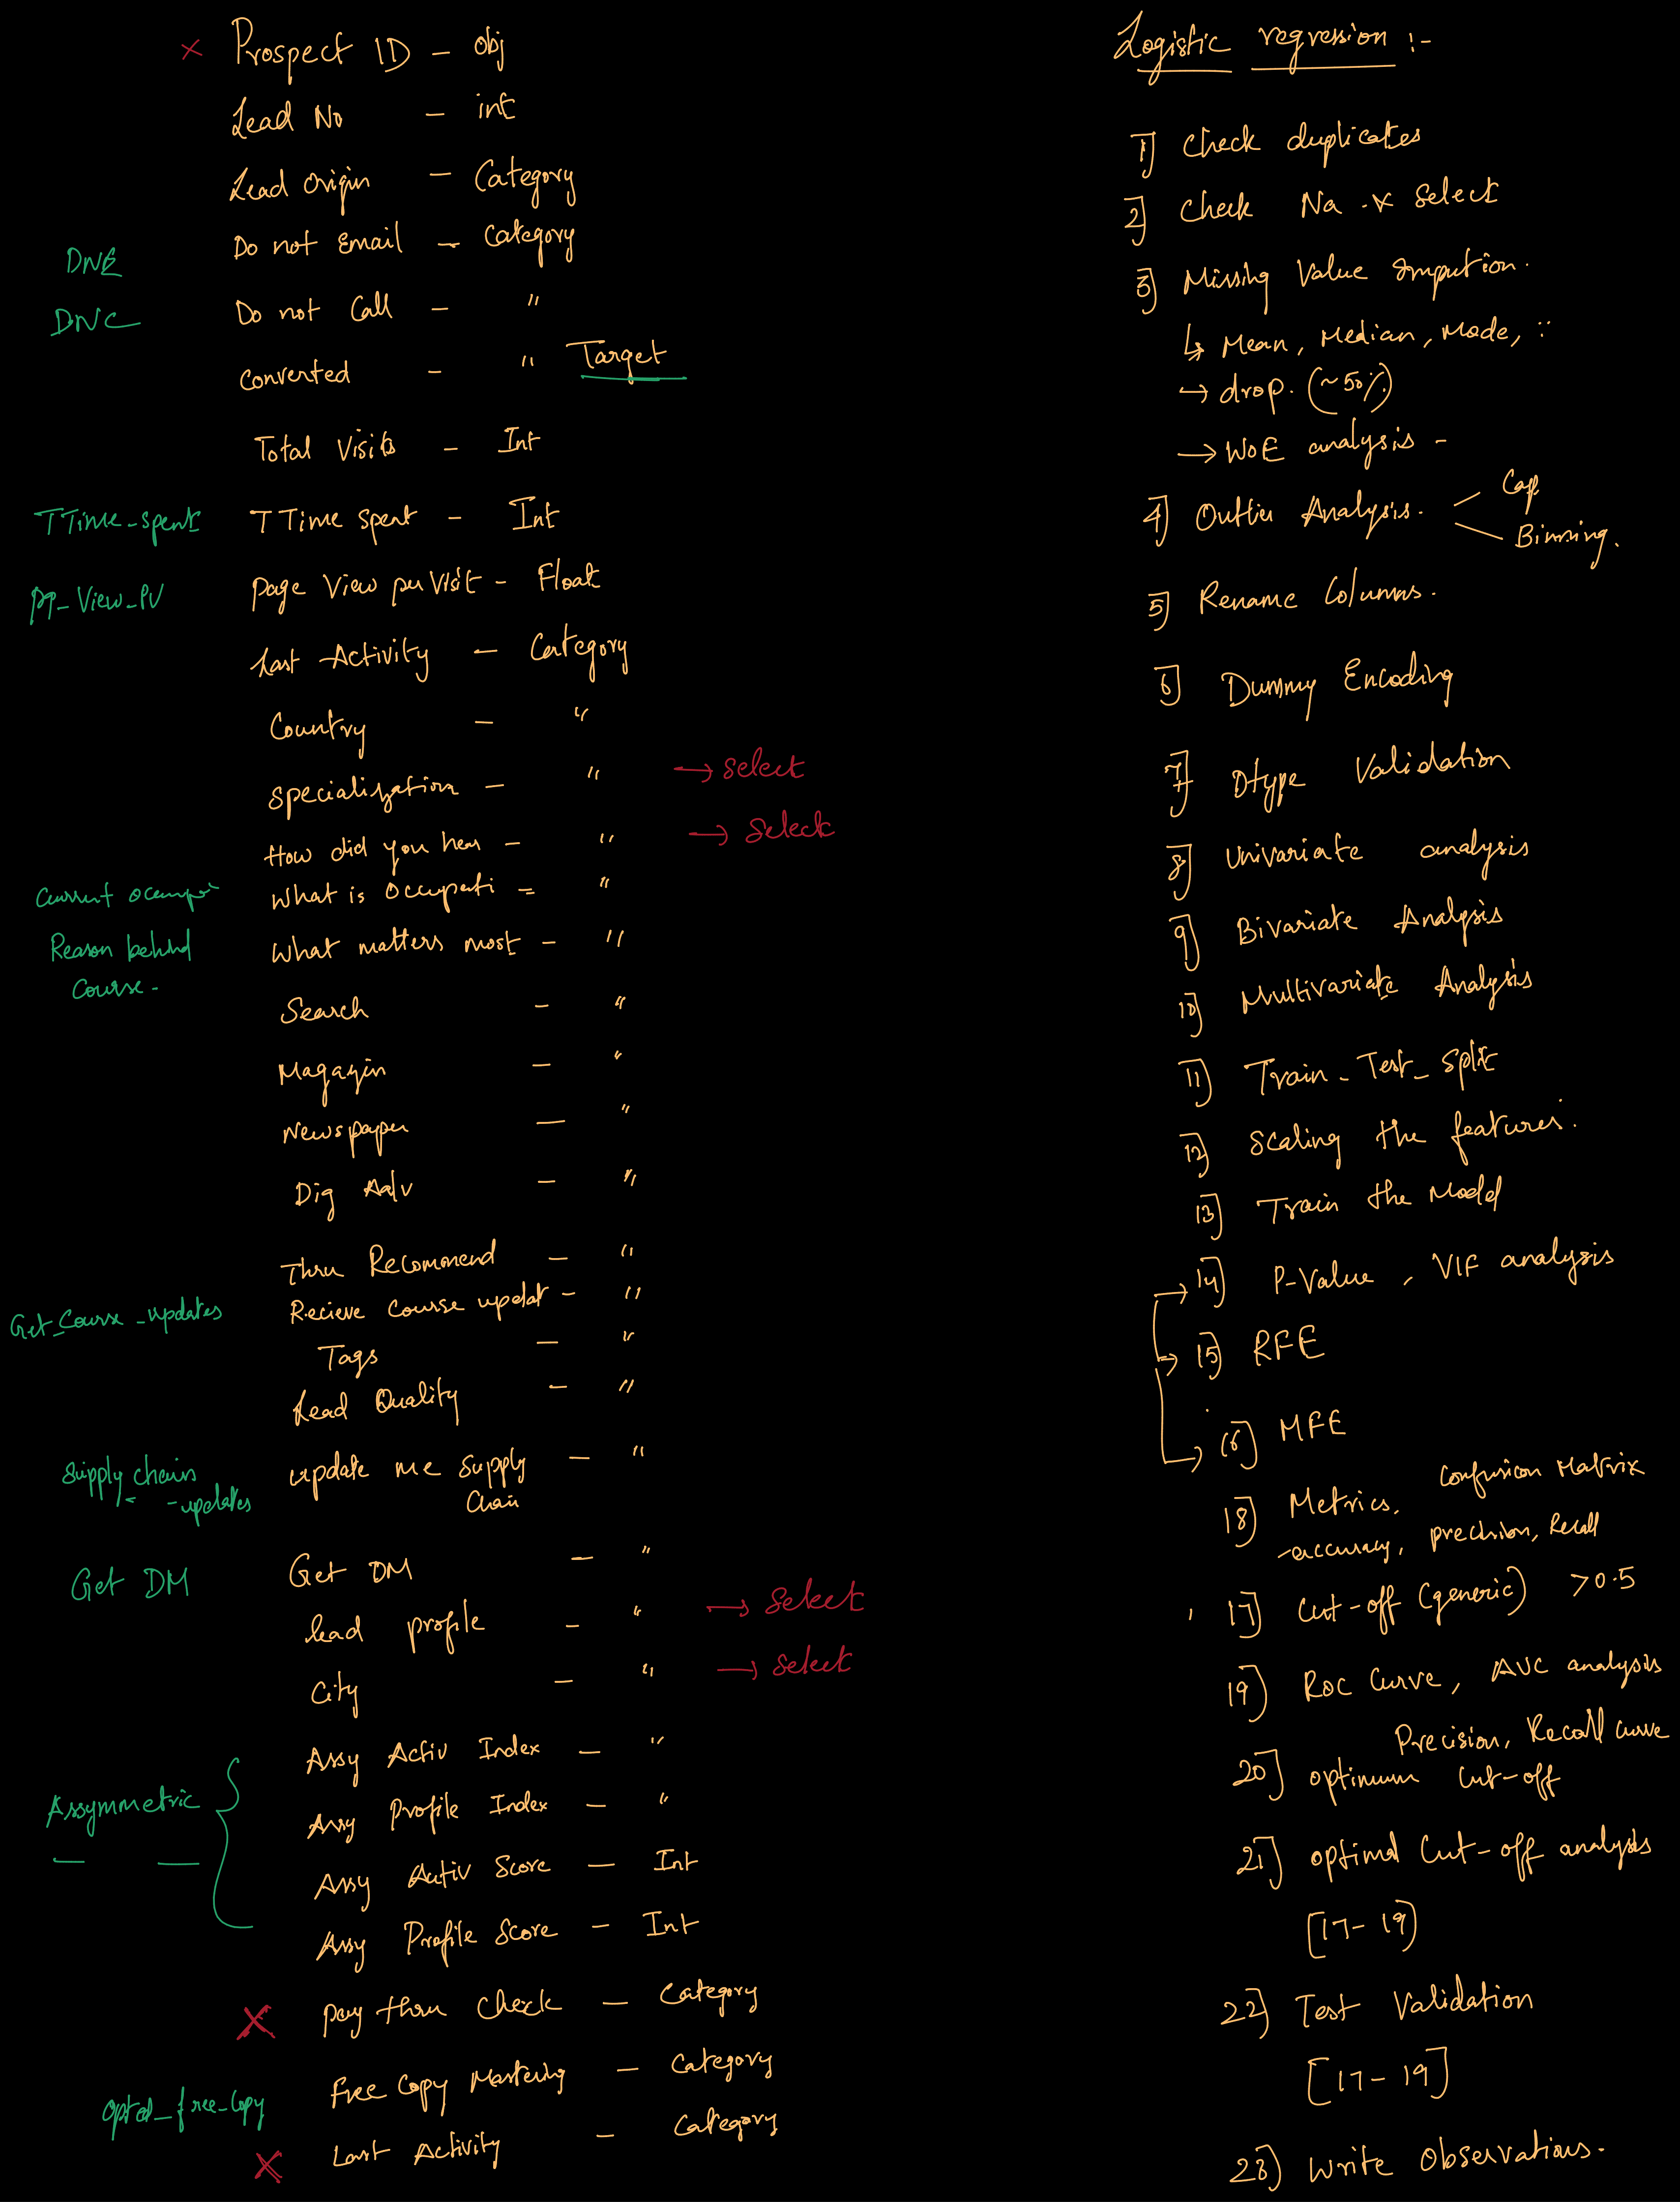 × Prospect ID - Obj
Lead No - int
Lead Origin - Category
DNE Do not Email - Category
DNC Do not Call - "
Converted - " Target
Total Visits - Int
TTime_spent TTime Spent - Int
Page View per Visit - Float
Last Activity - Category
Country - "
Specialization - " → Select
How did you hear - " → Select
Current What is Occupati - "
Reason behind What matters most - "
Course -
Search - "
Magazin - "
Newspaper - "
Dig Adv - "
Thru Recommend - "
Get_Course_updates Recieve Course updat - "
Tags - "
Lead Quality - "
Supply chain update me Supply - "
-updates Chain
Get DM Get DM - "
lead profile - " → Select
City - " → Select
Assy Activ Index - "
Assymmetric Assy Profile Index - "
Assy Activ Score - Int
Assy Profile Score - Int
× pay thru check - Category
Free Copy Mastering - Category
opted_free_copy
× Last Activity - Category
Logistic regression :-
1] Check duplicates
2] Check Na Select
3] Missing Value Impution.
↳ Mean, Median, Mode,
→ drop. (~50%)
→ WoE analysis -
4] Outlier Analysis. Cap
Binning.
5] Rename Columns.
6] Dummy Encoding
7] Dtype Validation
8] Univariate analysis
9] Bivariate Analysis
10] Multivariate Analysis
11] Train_Test_Split
12] Scaling the features.
13] Train the Model
14] P-Value, VIF analysis
15] RFE
16] MFE
18] Metrics, Confusion Matrix
-accuracy, precision, Recall
17] Cut-off (generic) >0.5
19] Roc Curve, AUC analysis
Precision, Recall curve
20] optimum Cut-off
21] optimal Cut-off analysis
[17-19]
22] Test Validation
[17-19]
23) Write Observations.